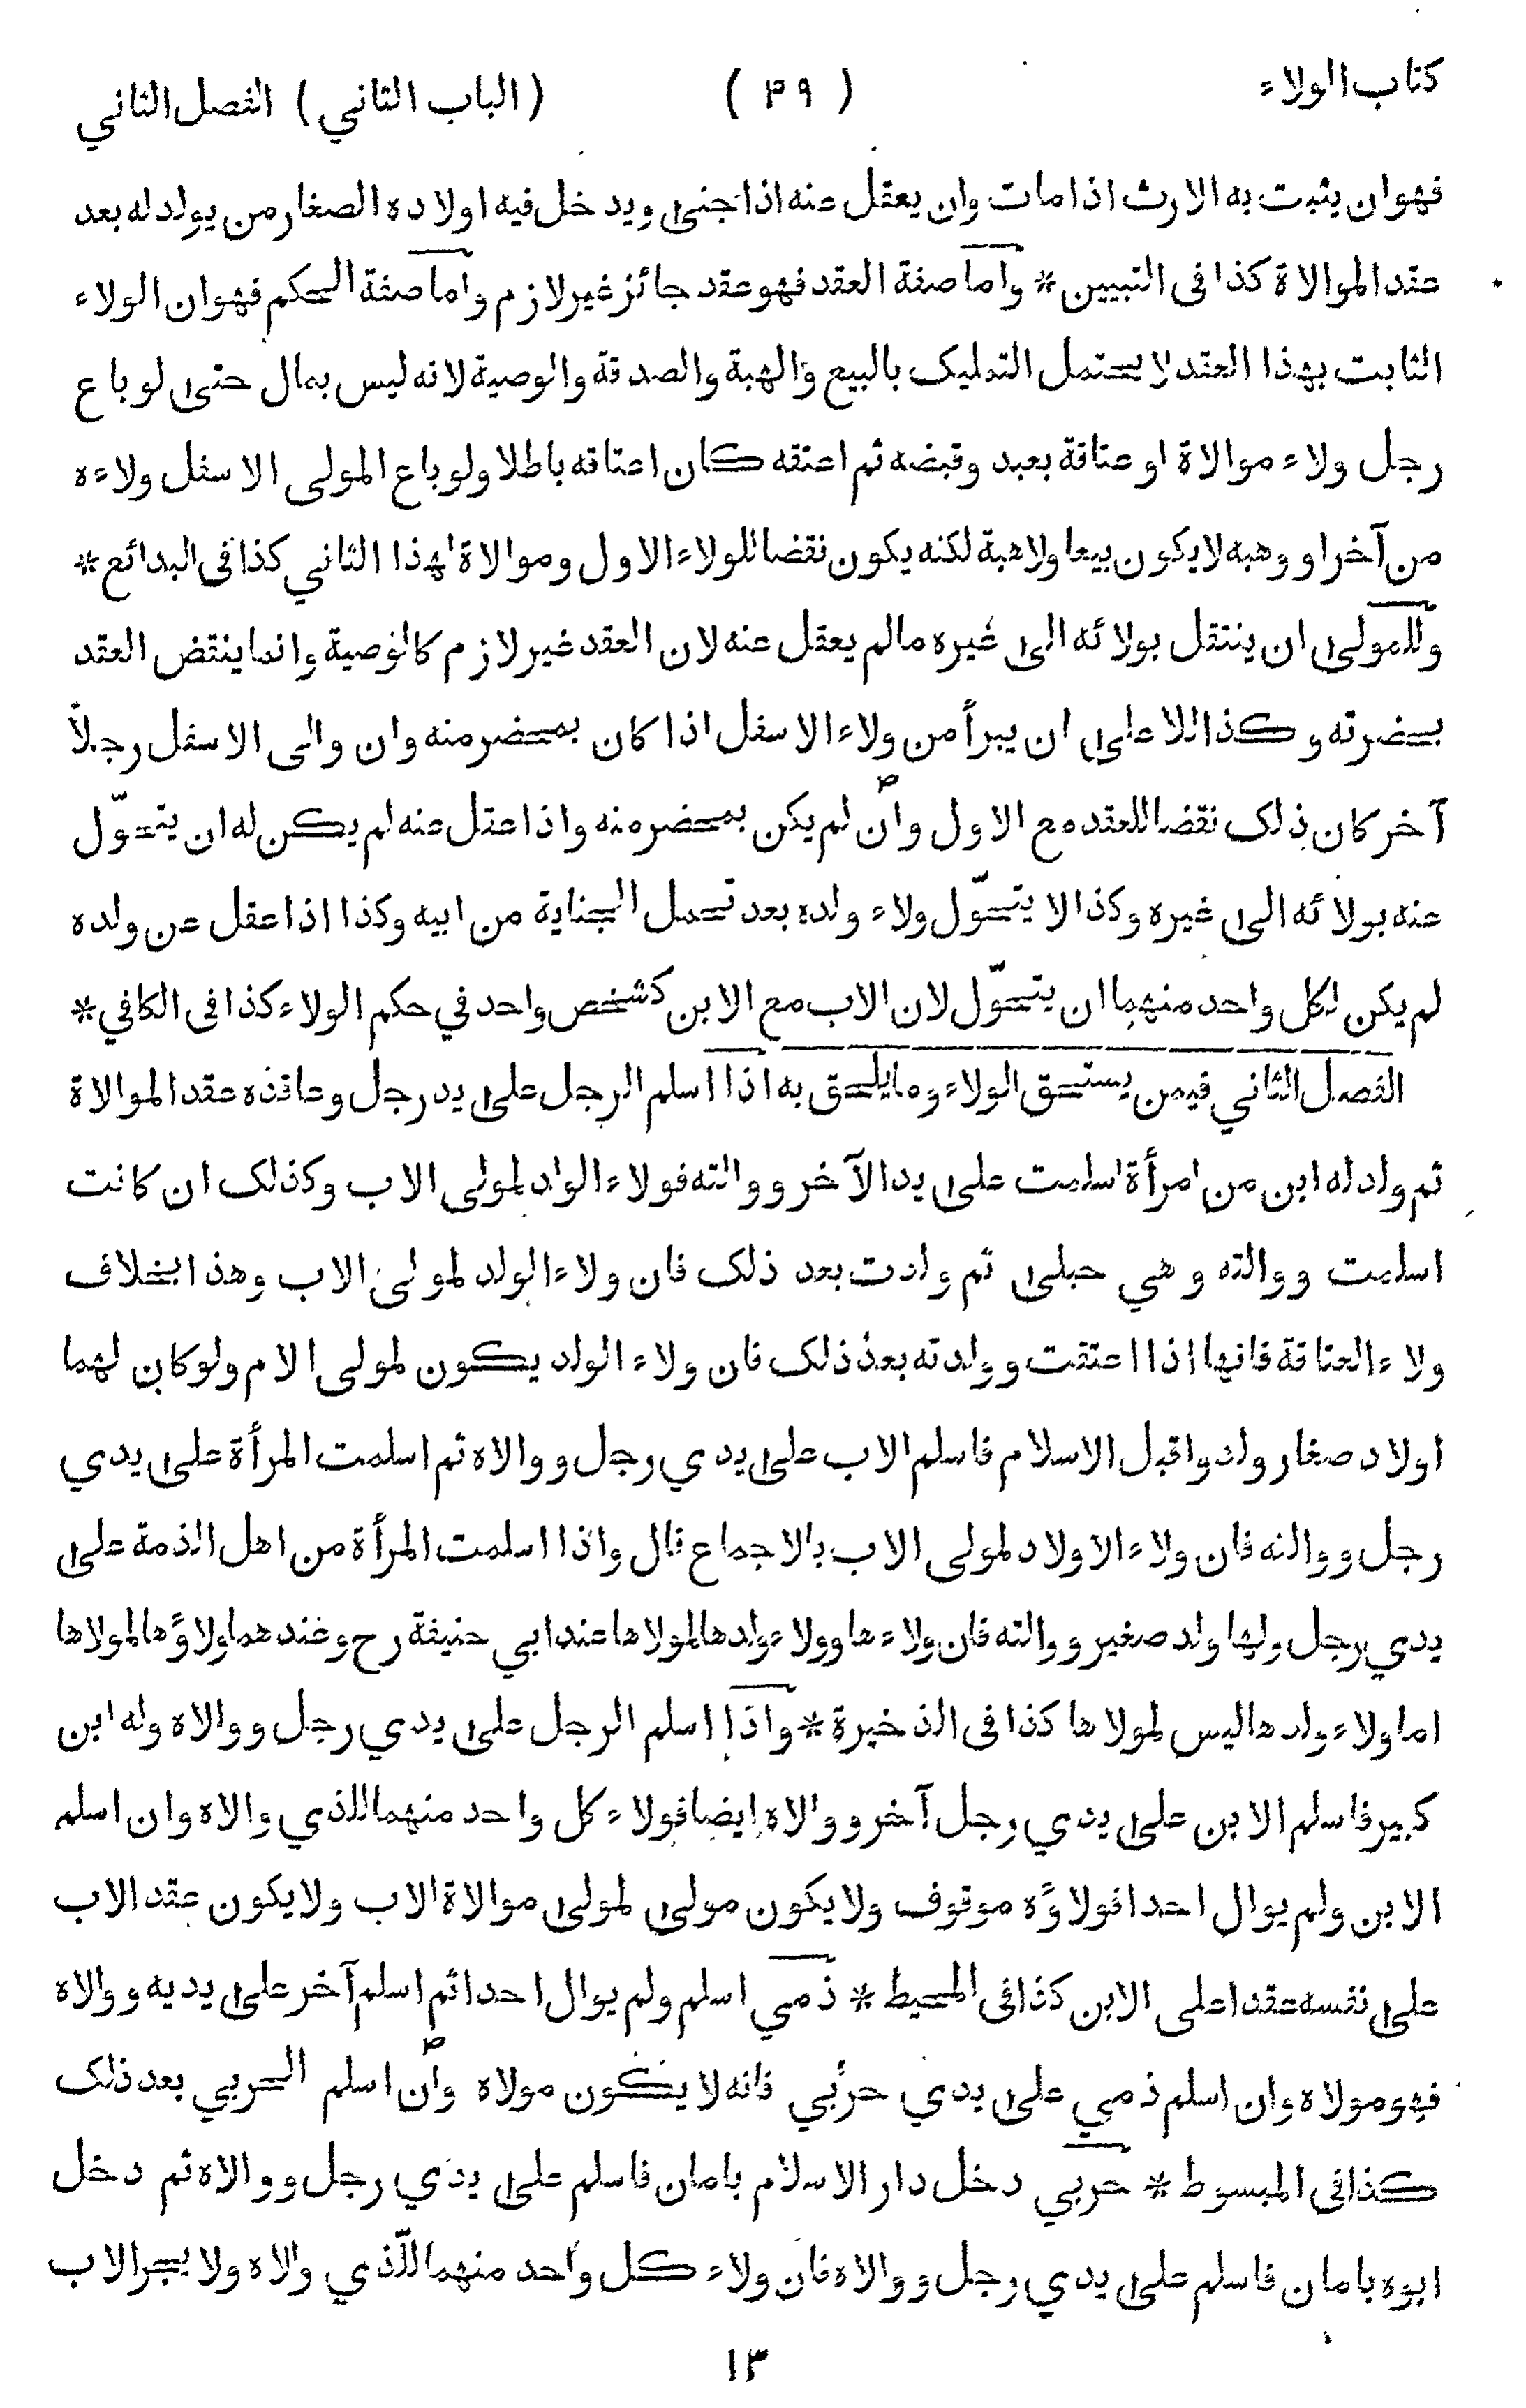 كتاب الولاء ( ۴۹ ) (الباب الثاني) الفصل الثاني
فهو ان يثبت به الارث اذا مات وان يعقل عنه اذا جنى ويدخل فيه اولاده الصغار من يولد له بعد
عقد الموالاة كذا فى التبيين * واما صفة العقد فهو عقد جائز غير لازم واما صفة الحكم فهو ان الولاء
الثابت بهذا العقد لا يحتمل التمليک بالبيع والهبة والصدقة والوصية لانه ليس بمال حتى لو باع
رجل ولاء موالاة او عتاقة بعبد وقبضه ثم اعتقه كان اعتاقه باطلا ولو باع المولى الاسفل ولاءه
من آخر او وهبه لا يكون بيعا ولا هبة لكنه يكون نقضا للولاء الاول وموالاة لهذا الثاني كذا فى البدائع *
وللمولى ان ينتقل بولائه الى غيره مالم يعقل عنه لان العقد غير لازم كالوصية وانما ينتقض العقد
بحضرته وكذا للاعلى ان يبرأ من ولاء الاسفل اذا كان بمحضر منه وان والى الاسفل رجلاً
آخر كان ذلک نقضا للعقد مع الاول وان لم يكن بمحضر منه واذا عقل عنه لم يكن له ان يتحوّل
عنه بولائه الى غيره وكذا لا يتحوّل ولاء ولده بعد تحمل الجناية من ابيه وكذا اذا عقل عن ولده
لم يكن لكل واحد منهما ان يتحوّل لان الاب مع الابن كشخص واحد في حكم الولاء كذا فى الكافي *
الفصل الثاني فيمن يستحق الولاء وما يلحق به اذا اسلم الرجل على يد رجل وعاقده عقد الموالاة
ثم ولد له ابن من امرأة اسلمت على يد الآخر ووالته فولاء الولد لمولى الاب وكذلک ان كانت
اسلمت ووالته وهي حبلى ثم ولدت بعد ذلک فان ولاء الولد لمولى الاب وهذا بخلاف
ولاء العتاقة فانها اذا اعتقت وولدته بعد ذلک فان ولاء الولد يكون لمولى الام ولو كان لهما
اولاد صغار ولدوا قبل الاسلام فاسلم الاب على يدي رجل ووالاه ثم اسلمت المرأة على يدي
رجل ووالته فان ولاء الاولاد لمولى الاب بالاجماع قال واذا اسلمت المرأة من اهل الذمة على
يدي رجل ولها ولد صغير ووالته فان ولاءها وولاء ولدها لمولاها عند ابي حنيفة رح وعندهما ولاؤها لمولاها
اما ولاء ولدها ليس لمولاها كذا فى الذخيرة * واذا اسلم الرجل على يدي رجل ووالاه وله ابن
كبير فاسلم الابن على يدي رجل آخر ووالاه ايضا فولاء كل واحد منهما للذي والاه وان اسلم
الابن ولم يوال احدا فولاؤه موقوف ولا يكون مولى لمولى موالاة الاب ولا يكون عقد الاب
على نفسه عقدا على الابن كذا فى المحيط * ذمي اسلم ولم يوال احدا ثم اسلم آخر على يديه ووالاه
فهو مولاه وان اسلم ذمي على يدي حربي فانه لا يكون مولاه وان اسلم الحربي بعد ذلک
كذا فى المبسوط * حربي دخل دار الاسلام بامان فاسلم على يدي رجل ووالاه ثم دخل
ابوه بامان فاسلم على يدي رجل ووالاه فان ولاء كل واحد منهما للّذي والاه ولا يجر الاب
۱۳